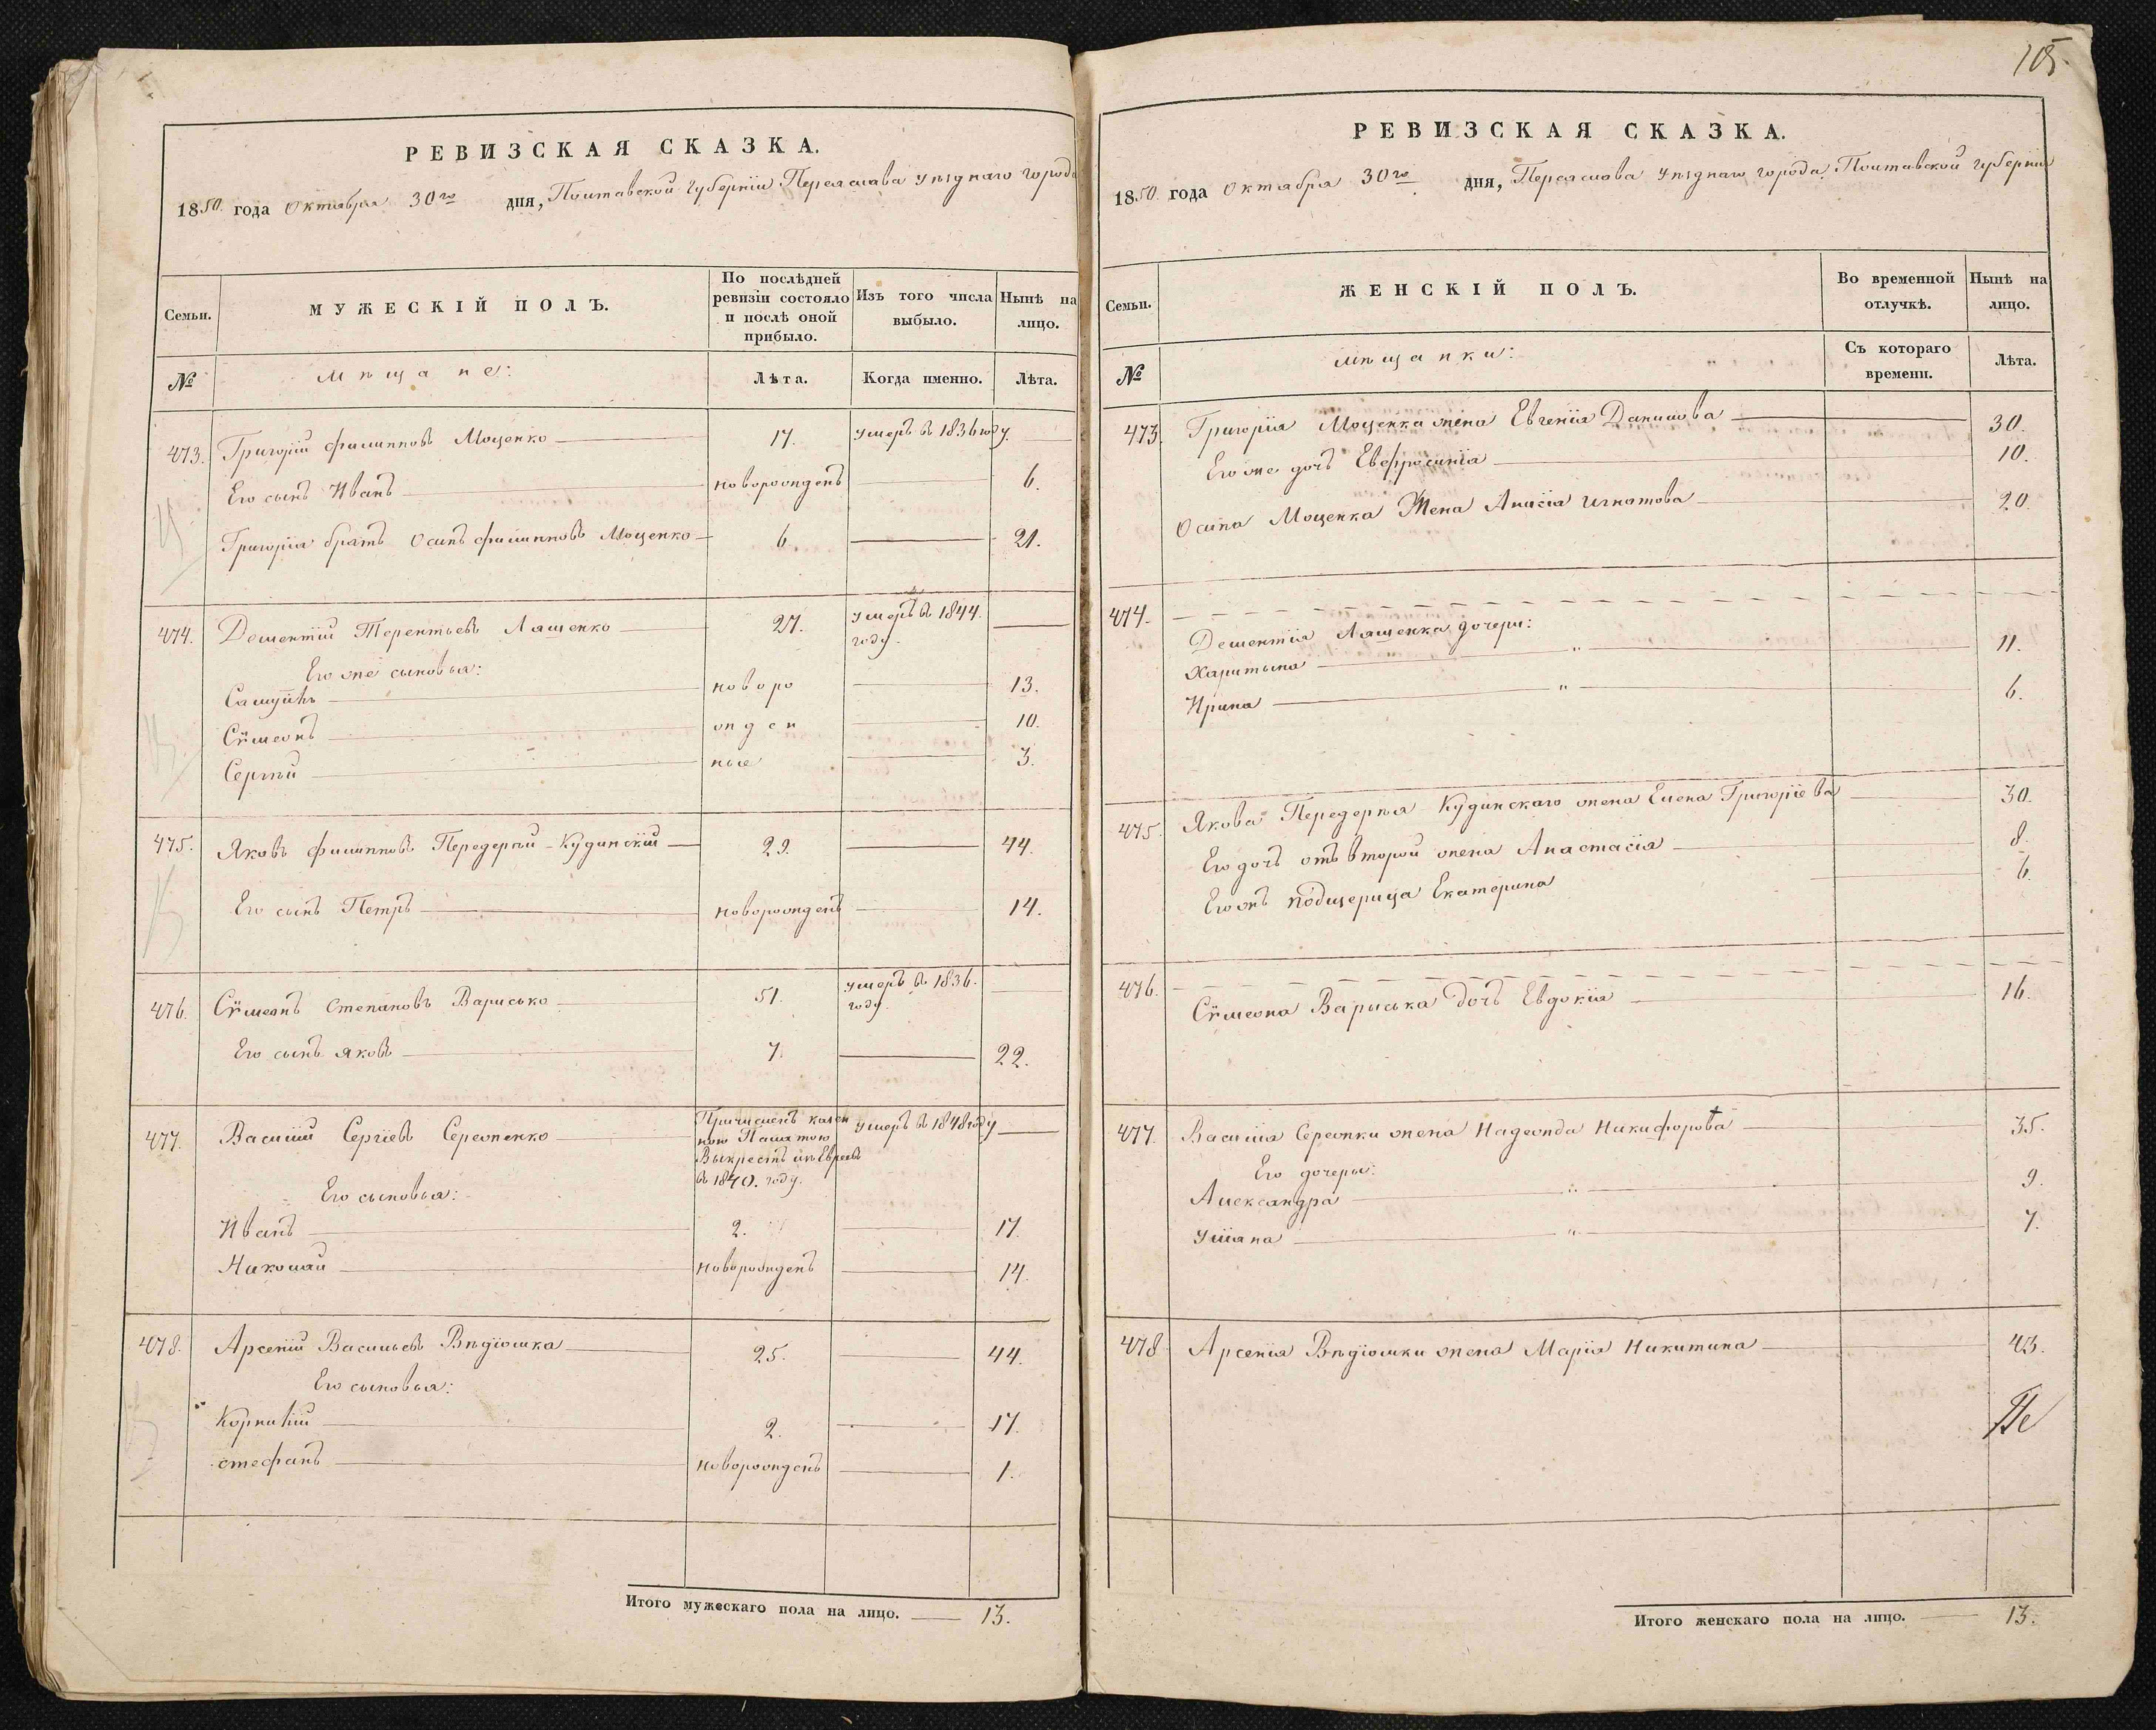 РЕВИЗСКАЯ СКАЗКА.
1850. года Октября 30го дня, Полтавской губерніи Переяслава уѣзднаго города
Семьи.
МУЖЕСКІЙ ПОЛЪ.
По послѣдней ревизіи состояло и послѣ оной прибыло.
Изъ того числа выбыло.
Нынѣ на лицо.
№
Мѣщане:
Лѣта.
Когда именно.
Лѣта.
473. Григорій Филипповъ Моценко 17. умеръ в 1836 году.
Его сынъ Иванъ новорожденъ 6.
Григорія братъ Осипъ Филипповъ Моценко 6. 21.
474. Дементій Терентьевъ Ляшенко 27. умеръ в 1844. году.
Его же сыновья:
Самуилъ новоро 13.
Сѵмеонъ жден 10.
Сергѣй ные 3.
475. Яковъ Филипповъ Передерѣй-Кудинскій 29. 44.
Его сынъ Петръ новорожденъ 14.
476. Сѵмеонъ СтепановъВарисько 51. умеръ в 1836. году.
Его сынъ Яковъ 7. 22.
477. Василій Сергіевъ Сереженко Причисленъ казен ною Палатою Выкрестъ изъ Евреевъ в 1840. году. умеръ в 1848 году
Его сыновья:
Иванъ 2. 17.
Николай новорожденъ 14.
478. Арсеній Васильевъ Вѣдіошка 25. 44.
Его сыновья:
Корнилій 2. 17.
Стефанъ новорожденъ 1.
Итого мужескаго пола на лицо. 13.
105.
РЕВИЗСКАЯ СКАЗКА.
1850. года Октября 30го дня, Переяслова уѣзднаго города, Полтавской губерніи
Семьи.
ЖЕНСКІЙ ПОЛЪ.
Во временной отлучкѣ.
Нынѣ на лицо.
№
мѣщанки:
Съ котораго времени.
Лѣта.
473. Григорія Моценка жена Евгенія Данилова 30.
Его же дочь Евфросинія 10.
Осипа Моценка Жена Анисія Игнатова 20.
474.
Дементія Ляшенка дочери:
Харитына " 11.
Ирина " 6.
475. Якова Передерѣя Кудинскаго жена Елена Григоріева 30.
Его дочь отъ второй жена Анастасія 8.
Его жъ подщерица Екатерина 6.
476.
Сѵмеона Вариська дочь Евдокія 16.
477. Василія Сережки жена Надежда Никифорова 35.
Его дочеры:
Александра " 9.
Уліана " 7.
478. Арсенія Вѣдіошки жена Марія Никитина 43.
Итого женскаго пола на лицо. 13.